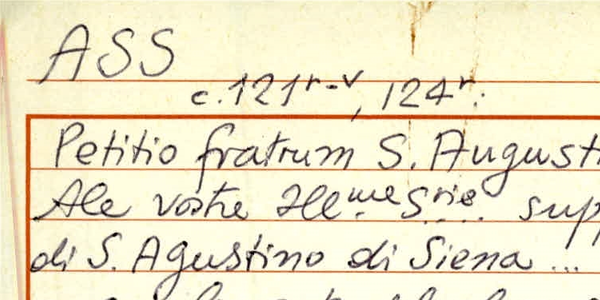 ASS
c.121r-v, 124r:
Petitio fratrum S. Augusti
Ale vostre Illme Srie supp
di S. Agustino di Siena ...